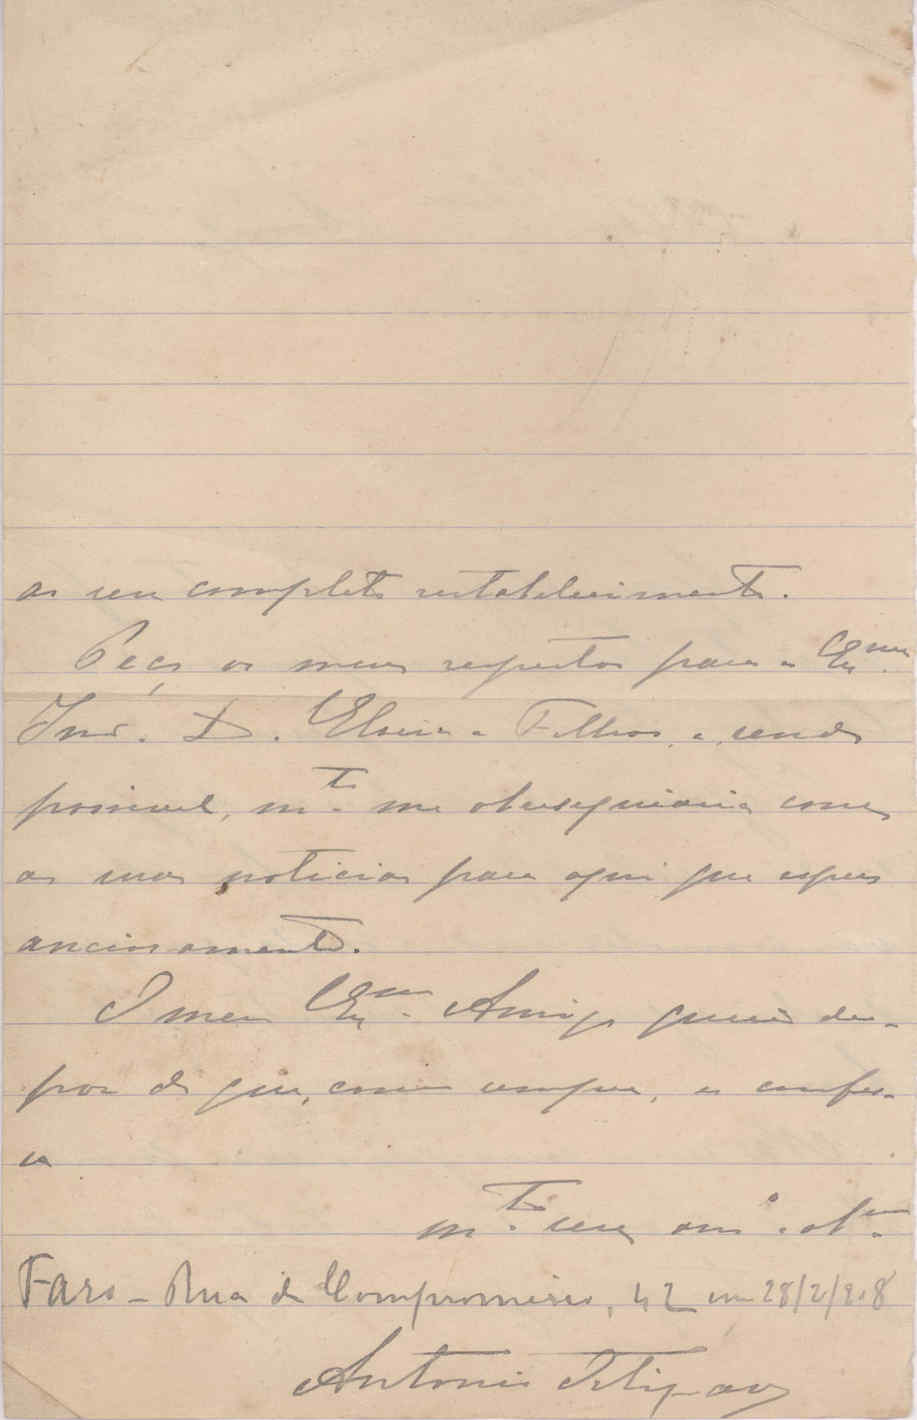 ao seu completo restabelecimento.
Peço os meus respeitos para a Exma.
Snra. D. Elvira e Filhos, e, sendo
possivel, mto. me obsequiaria com
as suas noticias para aqui que espero
anciosamente.
O meu Exmo. Amigo queira dis-
por de quem, como sempre, se confes-
sa
mto. seu amo. e obmo.
Faro - Rua do Compromisso, 42 em 28/2/908
Antonio